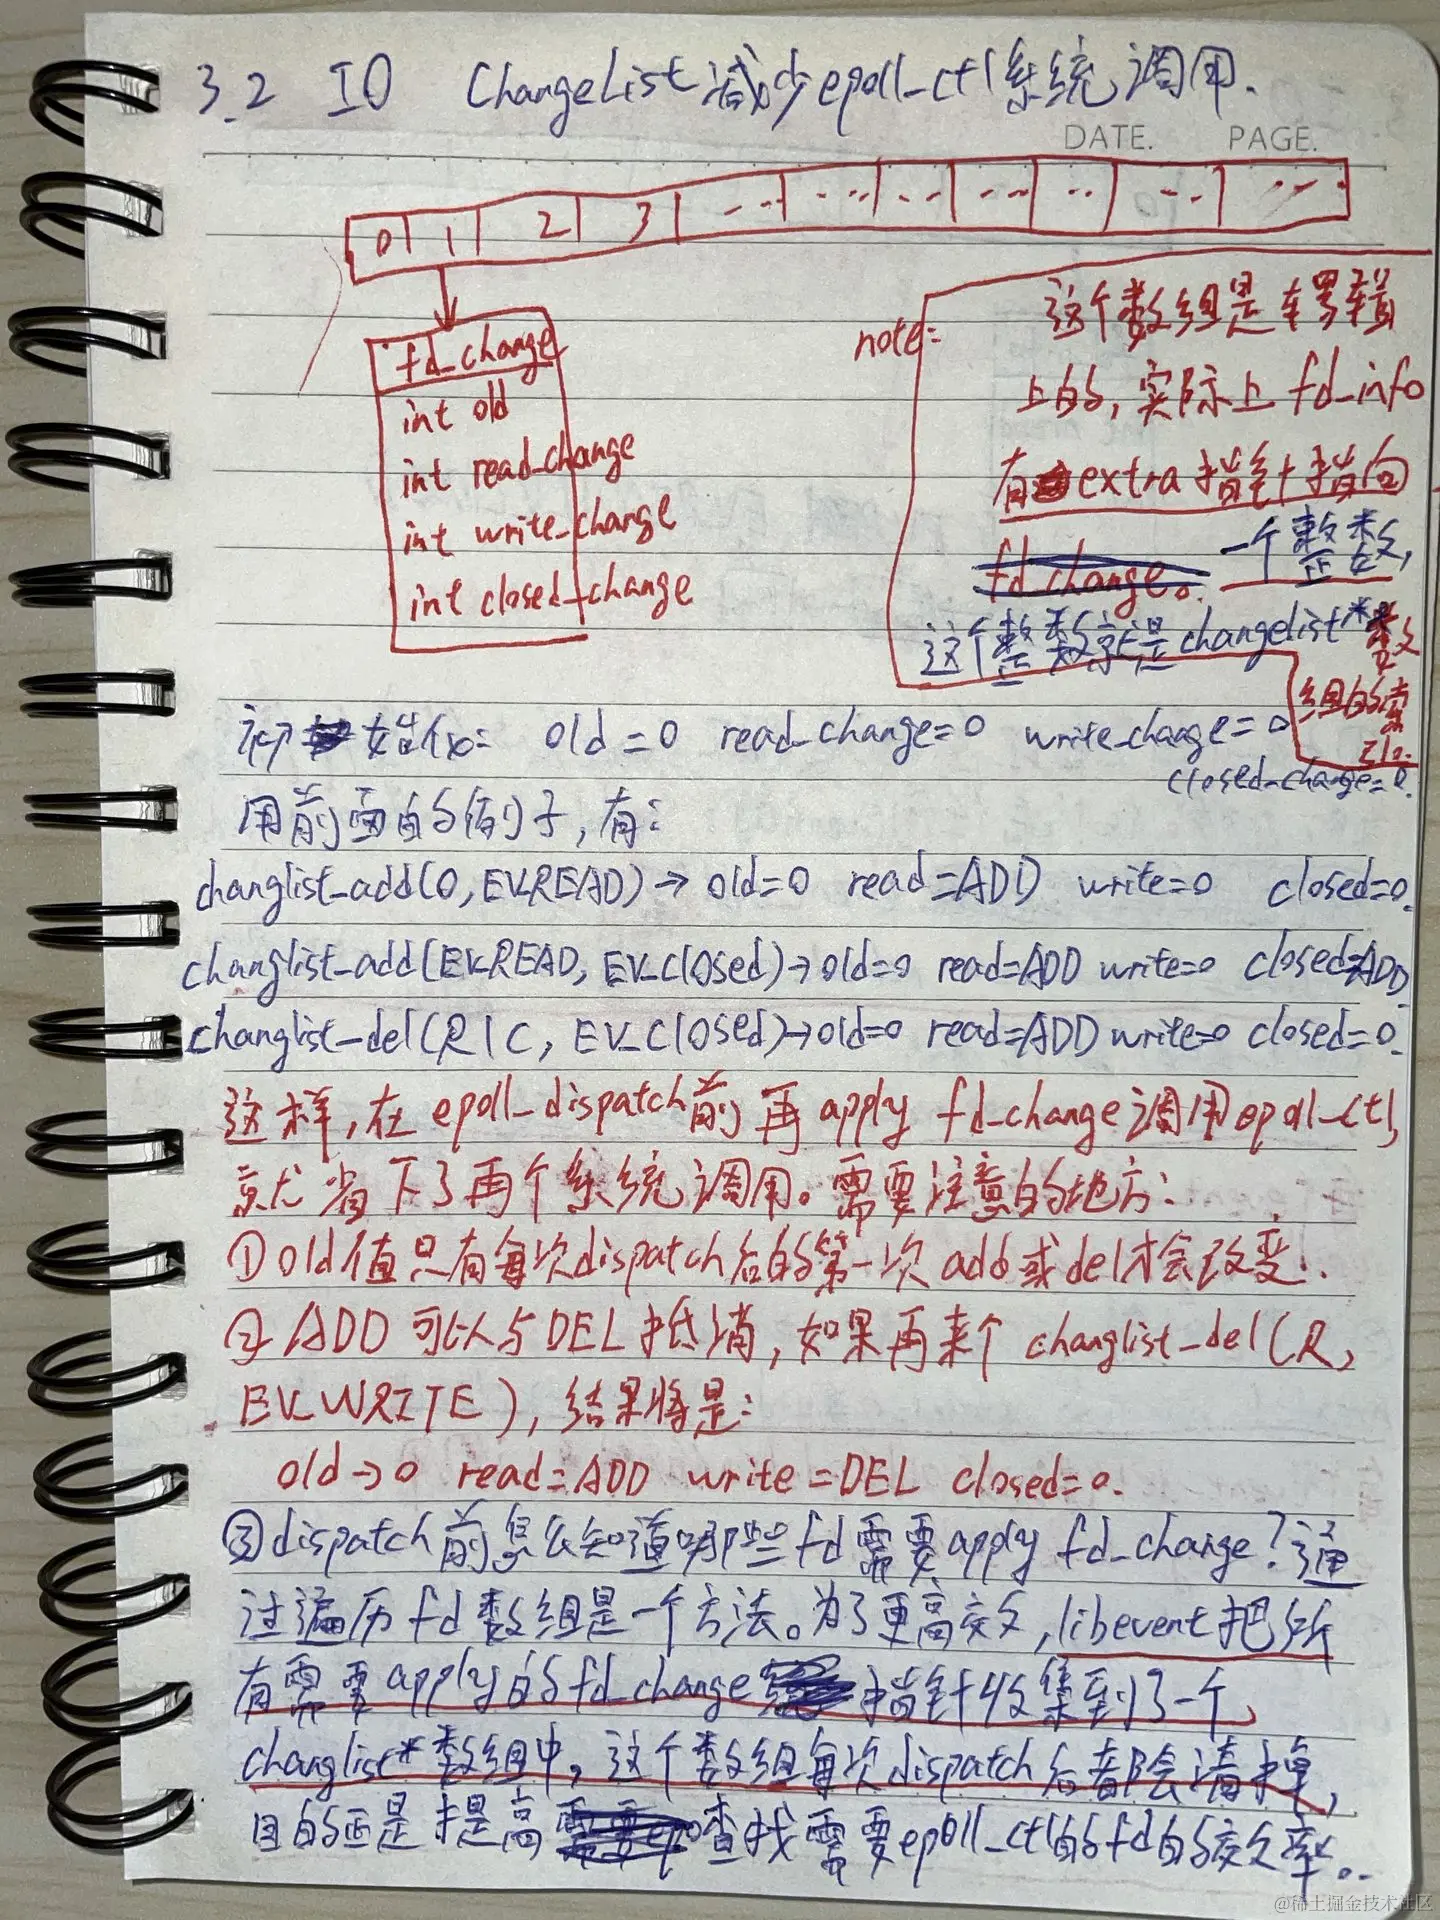 3.2 IO ChangeList减少epoll_ctl系统调用.
DATE. PAGE.
0 1 2 3 -- ·· -- -- -- ·· -- --
fd_change
int old
int read_change
int write_change
int closed_change
note:
这个数组是逻辑
上的, 实际上 fd_info
有extra指针指向
fd_change。一个整数,
这个整数就是changelist**数
组的索
引。
初始化: old=0 read_change=0 write_change=0
closed_change=0.
用前面的例子, 有:
changlist_add(0, EV_READ)→ old=0 read=ADD write=0 closed=0.
changlist_add(EV_READ, EV_Closed)→old=0 read=ADD write=0 closed=ADD.
changlist_del(R|C, EV_Closed)→old=0 read=ADD write=0 closed=0.
这样, 在epoll_dispatch前再apply fd_change调用epoll_ctl,
就省下了两个系统调用。需要注意的地方:
①old值只有每次dispatch后的第一次add或del才会改变.
②ADD可以与DEL抵消, 如果再来个changlist_del(R,
EV_WRITE), 结果将是:
old→0 read=ADD write=DEL closed=0.
③dispatch前怎么知道哪些fd需要apply fd_change?通
过遍历fd数组是一个方法。为了更高效, libevent把所
有需要apply的fd_change指针收集到了一个
changlist*数组中。这个数组每次dispatch后都会清掉,
目的正是提高查找需要epoll_ctl的fd的效率。
@稀土掘金技术社区